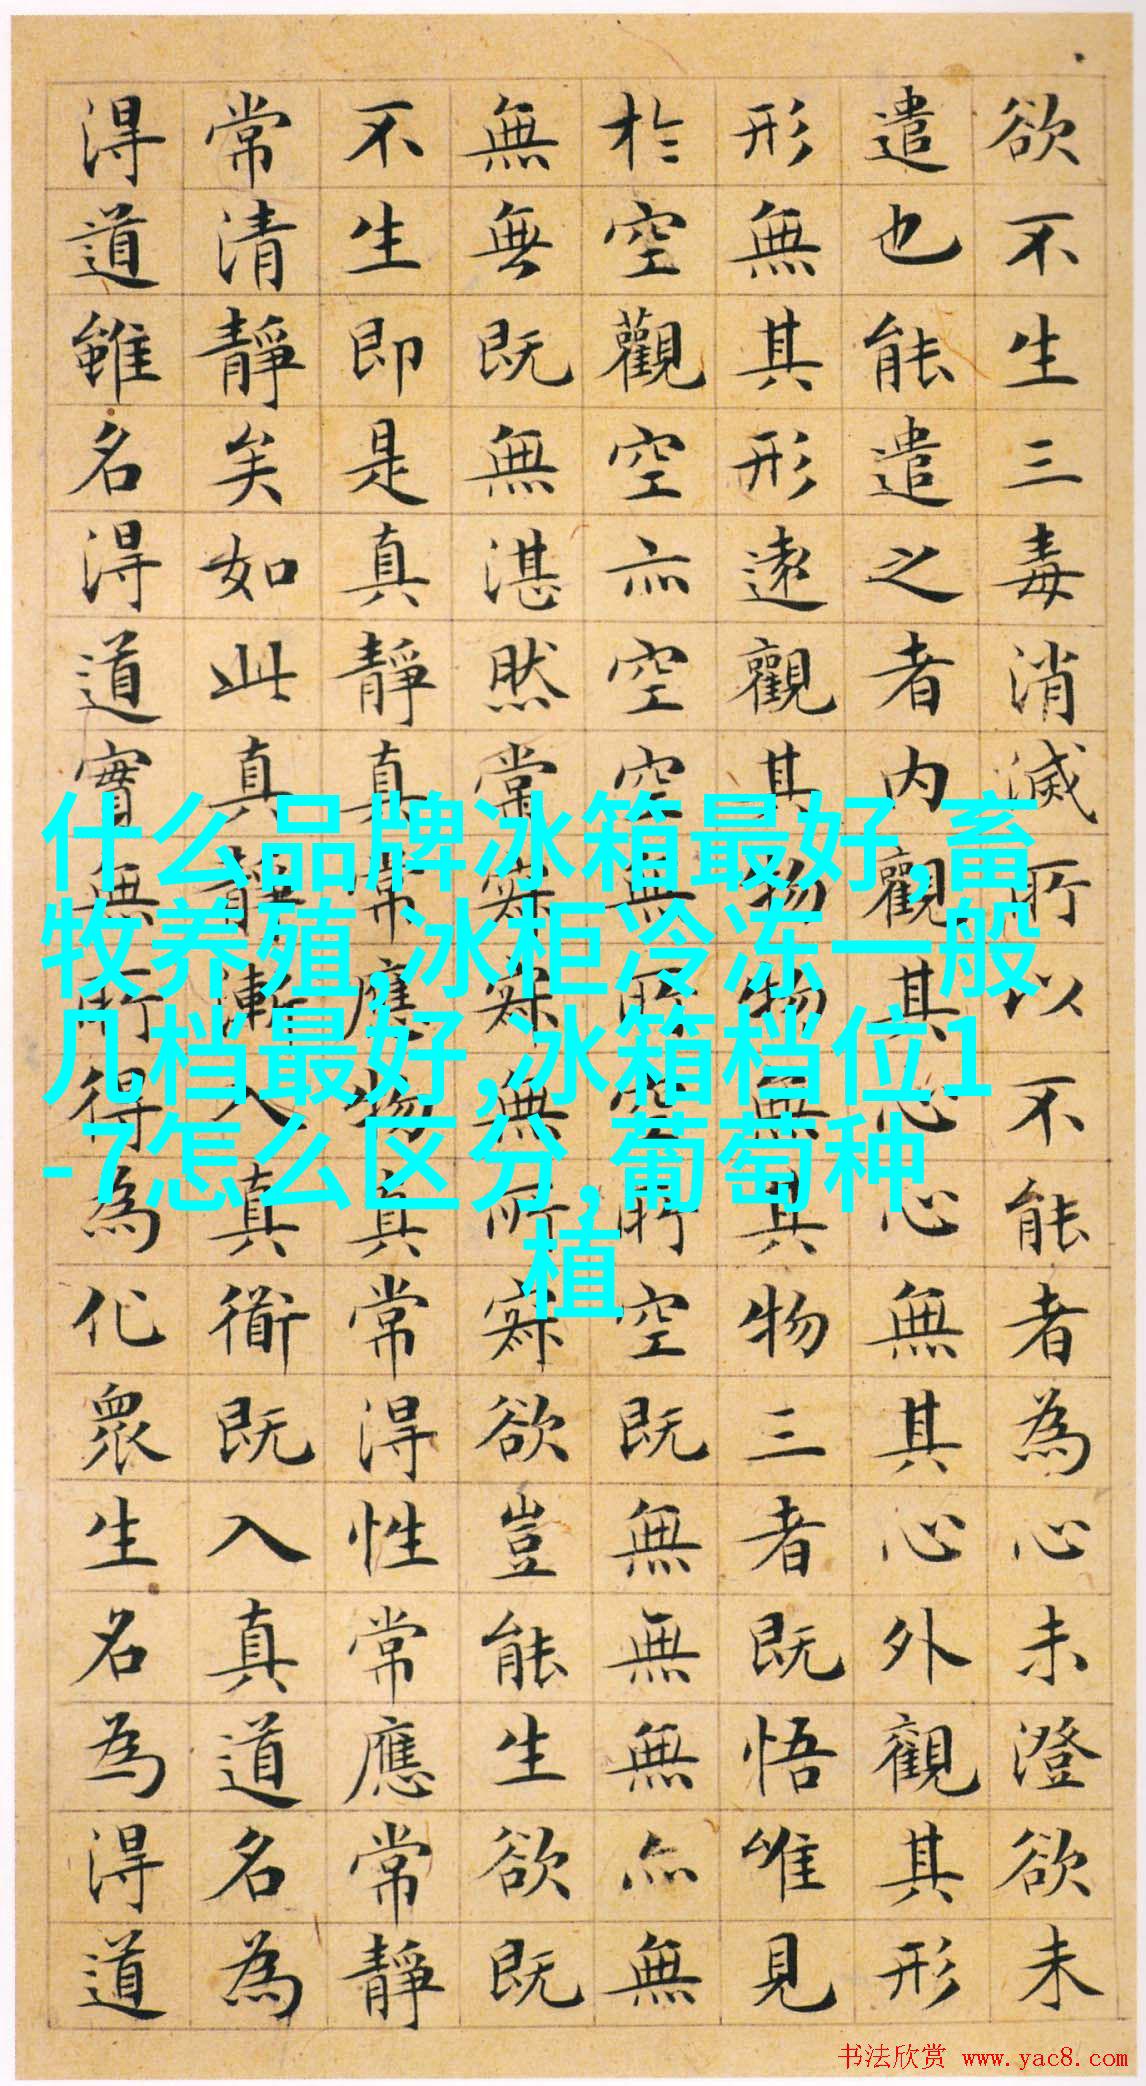 欲不生三毒消滅所以不能者為心未澄欲未
遣也能遣之者内觀其心心無其心外觀其形
形無其形遠觀其物物無其物三者既悟唯見
於空觀空亦空空無所空所空既無無無亦無
無無既無湛然常寂寂無所寂欲豈能生欲既
不生即是真靜真常應物真常得性常應常靜
常清靜矣如此真靜漸入真衟既入真道名為
得道雖名得道實無所得為化眾生名為得道
什么品牌冰箱最好,畜
牧养殖,冰柜冷冻一般
几档最好,冰箱档位1
-7怎么区分,葡萄种
植
书法欣赏 www.yac8.com